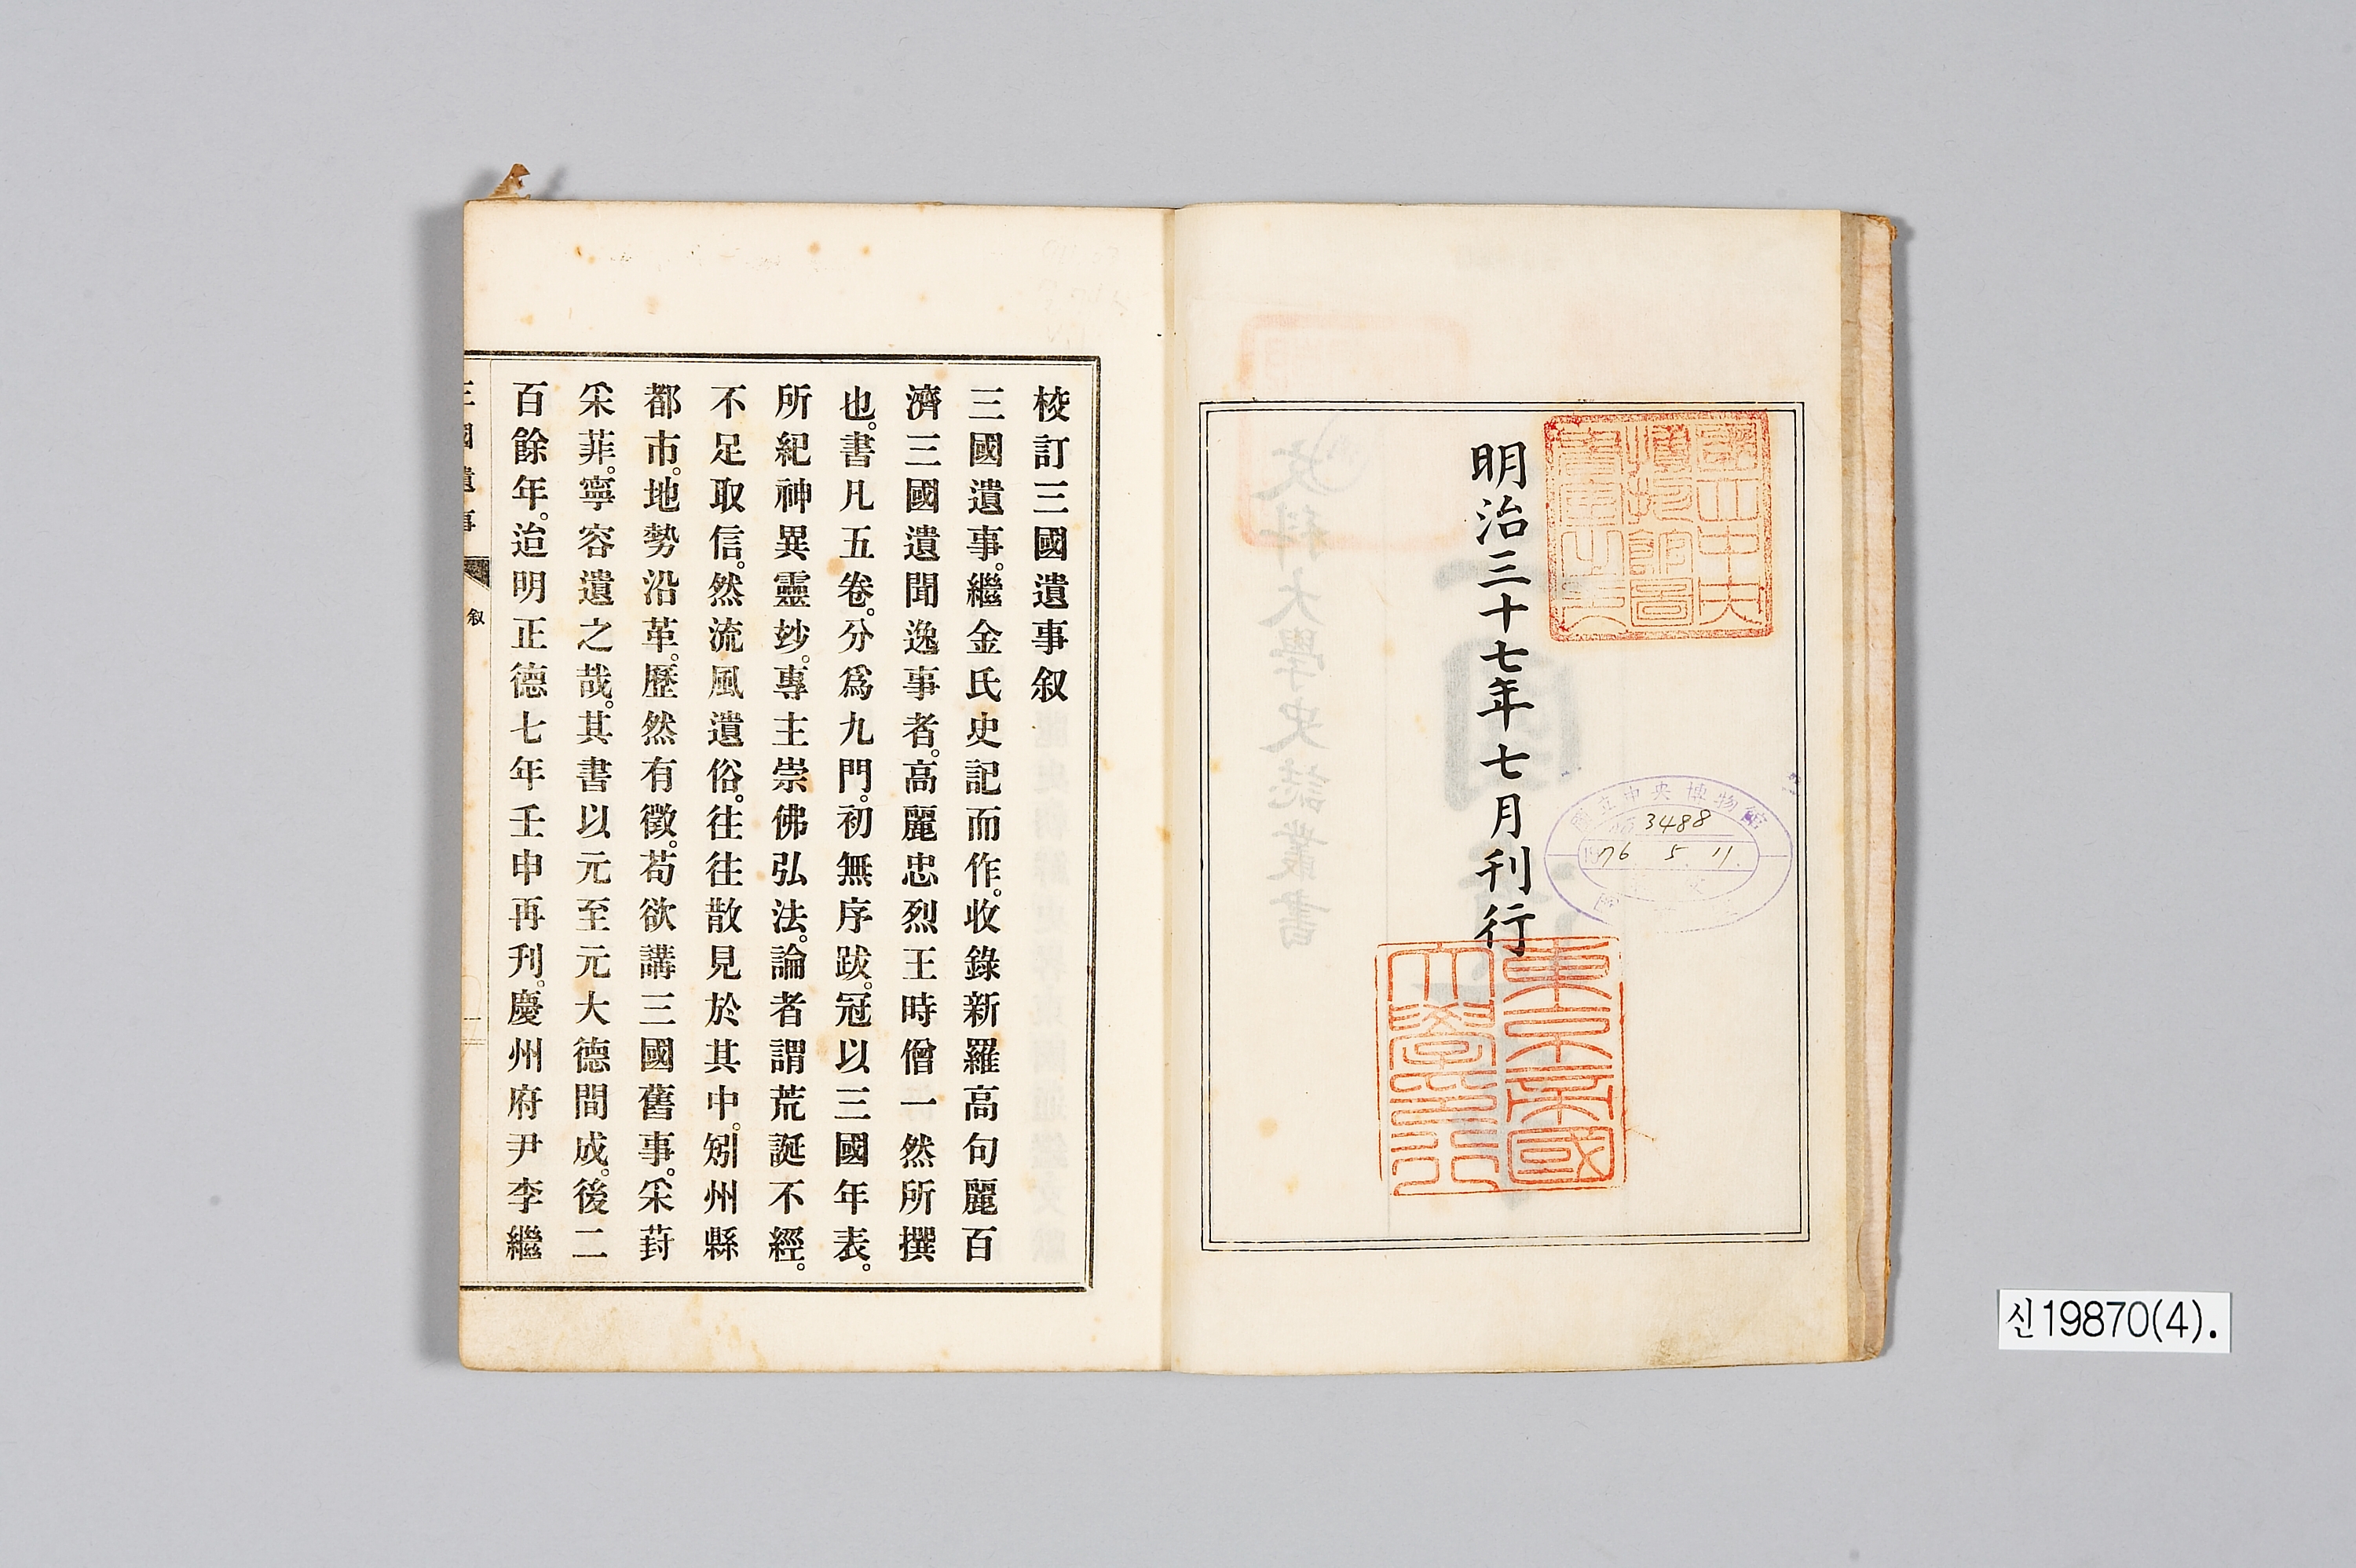 明治三十七年七月刊行
國立中央博物館圖書室之印
東京帝國大學之印
國立中央博物館
3488
1976 5. 11.
校訂三國遺事叙
三國遺事。繼金氏史記而作。收錄新羅高句麗百
濟三國遺聞逸事者。高麗忠烈王時僧一然所撰
也。書凡五卷。分爲九門。初無序跋。冠以三國年表。
所紀神異靈玅。專主崇佛弘法。論者謂荒誕不經。
不足取信。然流風遺俗。往往散見於其中。矧州縣
都市。地勢沿革。歷然有徵。苟欲講三國舊事。采葑
采菲。寧容遺之哉。其書以元至元大德間成。後二
百餘年。迨明正德七年壬申再刊。慶州府尹李繼
三國遺事
叙
一
신19870(4).